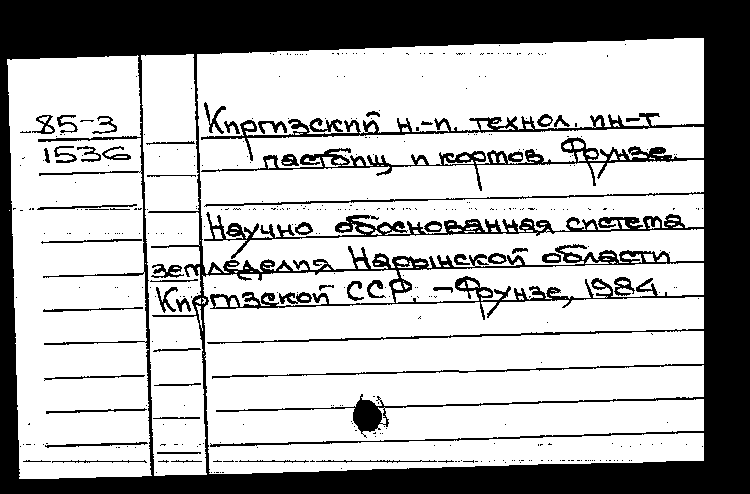 85-3
1536
Киргизский н.-и. технол. ин-т
пастбищ и кормов. Фрунзе.
Научно обоснованная система
земледелия Нарынской области
Киргизской ССР. – Фрунзе, 1984.